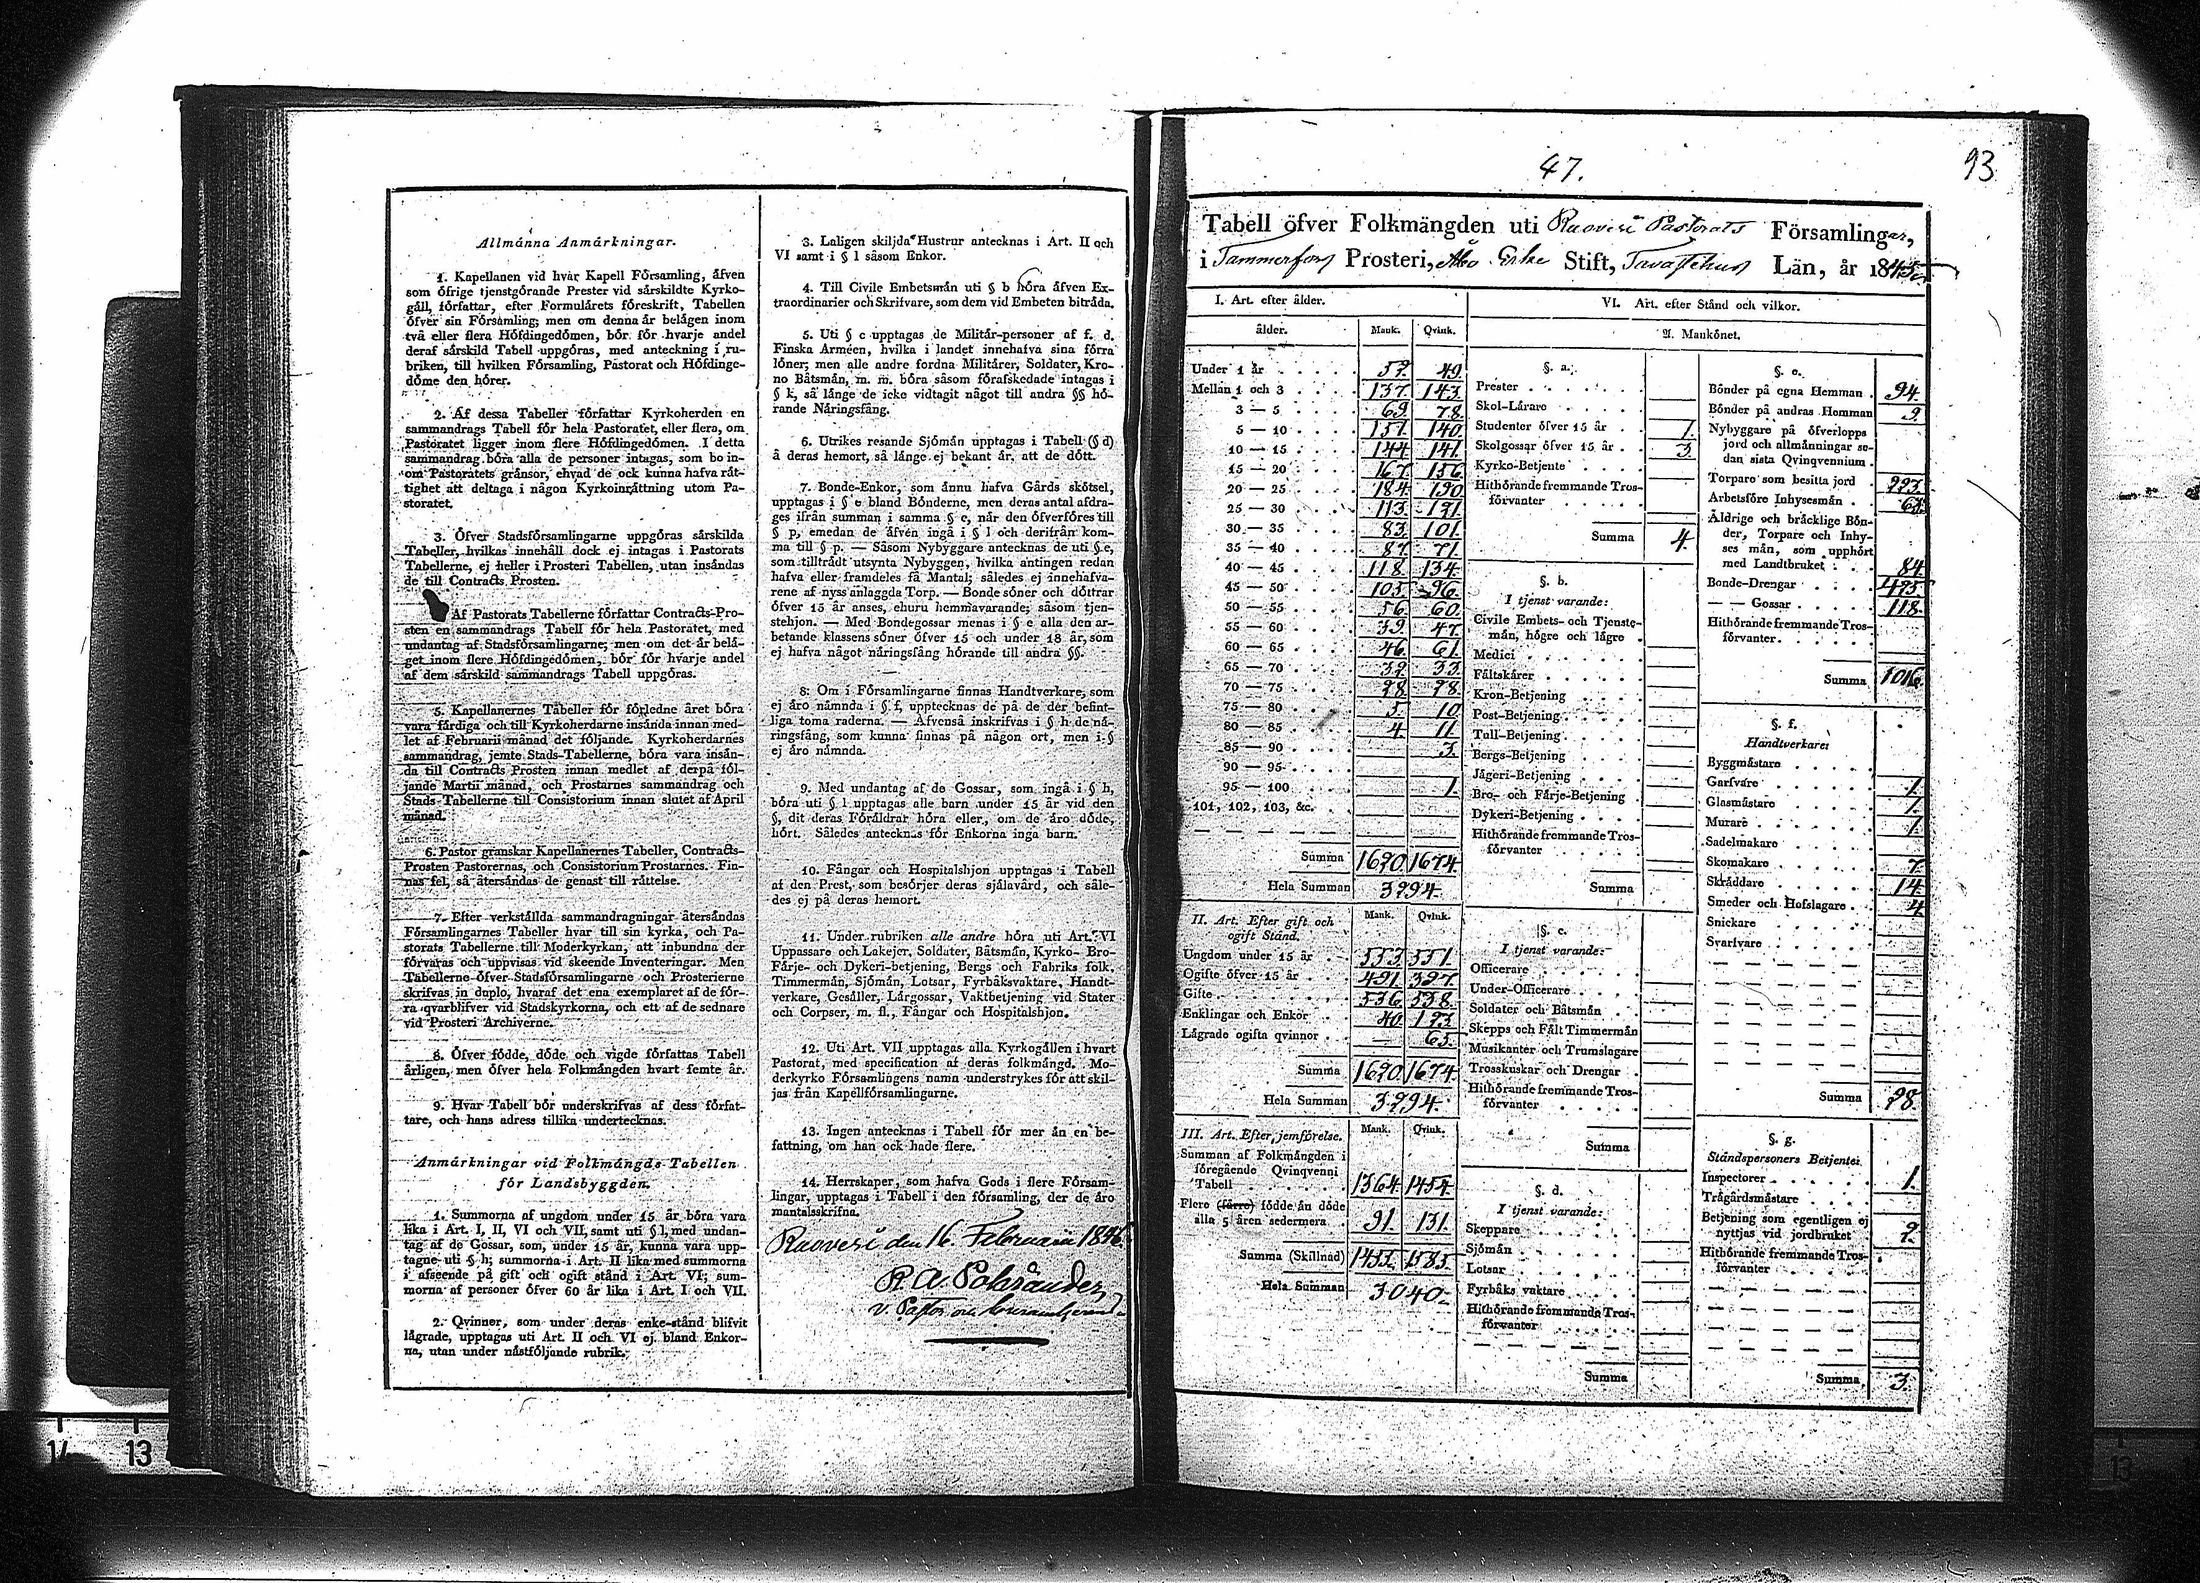 Allmänna Anmärkningar.
1. Kapellanen vid hvar Kapell Församling, äfven
som öfrige tjenstgörande Prester vid särskildte Kyrko-
gäll, författar, efter Formulärets föreskrift, Tabellen
öfver sin Församling; men om denna är belägen inom
två eller flera Höfdingedömen, bör för hvarje andel
deraf särskild Tabell uppgöras, med anteckning i ru-
briken, till hvilken Församling, Pastorat och Höfdinge-
döme den hörer.
2. Af dessa Tabeller författar Kyrkoherden en
sammandrags Tabell för hela Pastoratet, eller flera, om
Pastoratet ligger inom flere Höfdingedömen. I detta
sammandrag böra alla de personer intagas, som bo in-
om Pastoratets gränsor, ehvad de ock kunna hafva rät-
tighet att deltaga i någon Kyrkoinrättning utom Pa-
storatet.
3. Öfver Stadsförsamlingarne uppgöras särskilda
Tabeller, hvilkas innehåll dock ej intagas i Pastorats
Tabellerne, ej heller i Prosteri Tabellen, utan insändas
de till Contracts Prosten.
Af Pastorats Tabellerne författar Contracts-Pro-
sten en sammandrags Tabell för hela Pastoratet, med
undantag af Stadsförsamlingarne; men om det är belä-
get inom flere Höfdingedömen, bör för hvarje andel
af dem särskild sammandrags Tabell uppgöras.
5. Kapellanernes Tabeller för förledne året böra
vara färdiga och till Kyrkoherdarne insända innan med-
let af Februarii månad det följande. Kyrkoherdarnes
sammandrag, jemte Stads-Tabellerne, böra vara insän-
da till Contracts Prosten innan medlet af derpå föl-
jande Martii månad, och Prostarnes sammandrag och
Stads-Tabellerne till Consistorium innan slutet af April
månad.
6. Pastor granskar Kapellanernes Tabeller, Contracts-
Prosten Pastorernas, och Consistorium Prostarnes. Fin-
nas fel, så återsändas de genast till rättelse.
7. Efter verkställda sammandragningar återsändas
Församlingarnes Tabeller hvar till sin kyrka, och Pa-
storats Tabellerne till Moderkyrkan, att inbundna der
förvaras och uppvisas vid skeende Inventeringar. Men
Tabellerne öfver Stadsförsamlingarne och Prosterierne
skrifvas in duplo, hvaraf det ena exemplaret af de för-
ra qvarblifver vid Stadskyrkorna, och ett af de sednare
vid Prosteri Archiverne.
8. Öfver födde, döde och vigde författas Tabell
årligen, men öfver hela Folkmängden hvart femte år.
9. Hvar Tabell bör underskrifvas af dess förfat-
tare, och hans adress tillika undertecknas.
Anmärkningar vid Folkmängds-Tabellen
för Landsbyggden.
1. Summorna af ungdom under 15 år böra vara
lika i Art. I, II, VI och VII, samt uti § l, med undan-
tag af de Gossar, som, under 15 år, kunna vara upp-
tagne uti § h; summorna i Art. II lika med summorna
i afseende på gift och ogift stånd i Art. VI; sum-
morna af personer öfver 60 år lika i Art. I och VII.
2. Qvinner, som under deras enke-stånd blifvit
lägrade, upptagas uti Art. II och VI ej bland Enkor-
na, utan under nästföljande rubrik.
3. Laligen skiljda Hustrur antecknas i Art. II och
VI samt i § l såsom Enkor.
4. Till Civile Embetsmän uti § b höra äfven Ex-
traordinarier och Skrifvare, som dem vid Embeten biträda.
5. Uti § c upptagas de Militär-personer af f. d.
Finska Arméen, hvilka i landet innehafva sina förra
löner; men alle andre fordna Militärer, Soldater, Kro-
no Båtsmän, m. m. böra såsom förafskedade intagas i
§ k, så länge de icke vidtagit något till andra §§ hö-
rande Näringsfång.
6. Utrikes resande Sjömän upptagas i Tabell (§ d)
å deras hemort, så länge ej bekant är, att de dött.
7. Bonde-Enkor, som ännu hafva Gårds skötsel,
upptagas i § e bland Bönderne, men deras antal afdra-
ges ifrån summan i samma § e, når den öfverföres till
§ p, emedan de äfven ingå i § l och derifrån kom-
ma till § p. — Såsom Nybyggare antecknas de uti § e,
som tillträdt utsynta Nybyggen, hvilka antingen redan
hafva eller framdeles få Mantal; således ej innehafva-
rene af nyss anlaggda Torp. — Bonde söner och döttrar
öfver 15 år anses, ehuru hemmavarande, såsom tjen-
stehjon. — Med Bondegossar menas i § e alla den ar-
betande klassens söner öfver 15 och under 18 år, som
ej hafva något näringsfång hörande till andra §§.
8. Om i Församlingarne finnas Handtverkare, som
ej äro nämnda i § f, upptecknas de på de der befint-
liga toma raderna. — Äfvenså inskrifvas i § h de nä-
ringsfång, som kunna finnas på någon ort, men i §
ej äro nämnda.
9. Med undantag af de Gossar, som ingå i § h,
böra uti § l upptagas alle barn under 15 år vid den
§, dit deras Föräldrar höra eller, om de äro döde,
hört. Således antecknas för Enkorna inga barn.
10. Fångar och Hospitalshjon upptagas i Tabell
af den Prest, som besörjer deras själavård, och såle-
des ej på deras hemort.
11. Under rubriken alle andre höra uti Art. VI
Uppassare och Lakejer, Soldater, Båtsmän, Kyrko- Bro-
Färje- och Dykeri-betjening, Bergs och Fabriks folk,
Timmermän, Sjömän, Lotsar, Fyrbåksvaktare, Handt-
verkare, Gesäller, Lärgossar, Vaktbetjening vid Stater
och Corpser, m. fl., Fångar och Hospitalshjon.
12. Uti Art. VII upptagas alla Kyrkogällen i hvart
Pastorat, med specification af deras folkmängd. Mo-
derkyrko Församlingens namn understrykes för att skil-
jas från Kapellförsamlingarne.
13. Ingen antecknas i Tabell för mer än en be-
fattning, om han ock hade flere.
14. Herrskaper, som hafva Gods i flere Försam-
lingar, upptagas i Tabell i den församling, der de äro
mantalsskrifna.
Ruovesi den 16 Februarii 1846
v. Pastor
47.
93
Tabell öfver Folkmängden uti Ruovesi Pastorats Församlingar,
i Tammerfors Prosteri, Åbo Erke Stift, Tavastehus Län, år 1845
I. Art. efter ålder.
ålder. Mank. Qvink.
Under 1 år 57. 49.
Mellan 1 och 3 137. 143.
3 — 5 69. 78.
5 — 10 151. 140
10 — 15 144. 141.
15 — 20 167. 156
20 — 25 184. 190
25 — 30 113. 131.
30 — 35 83. 101.
35 — 40 87. 71.
40 — 45 118. 134.
45 — 50 105. 96.
50 — 55 56. 60.
55 — 60 39. 47.
60 — 65 46. 61.
65 — 70 32. 33.
70 — 75 28. 28.
75 — 80 5. 10.
80 — 85 4. 11.
85 — 90 3.
90 — 95
95 — 100 1.
101, 102, 103, &c.
Summa 1620. 1674.
Hela Summan 3294.
II. Art. Efter gift och
ogift Stånd. Mank. Qvink.
Ungdom under 15 år 553. 551.
Ogifte öfver 15 år 491. 397.
Gifte 536. 538.
Enklingar och Enkor 40. 123.
Lägrade ogifta qvinnor — 65.
Summa 1620. 1674.
Hela Summan 3294.
III. Art. Efter jemförelse. Mank. Qvink.
Summan af Folkmängden i
föregående Qvinqvenni
Tabell 1364. 1454.
Flere (färre) födde än döde
alla 5 åren sedermera 91. 131.
Summa (Skillnad) 1455. 1585.
Hela Summan 3040.
VI. Art. efter Stånd och vilkor.
A. Mankönet.
§. a.
Prester
Skol-Lärare
Studenter öfver 15 år 1.
Skolgossar öfver 15 år 3.
Kyrko-Betjente
Hithörande fremmande Tros-
förvanter
Summa 4.
§. b.
I tjenst varande:
Civile Embets- och Tjenste-
män, högre och lägre
Medici
Fältskärer
Kron-Betjening
Post-Betjening
Tull-Betjening
Bergs-Betjening
Jägeri-Betjening
Bro- och Färje-Betjening
Dykeri-Betjening
Hithörande fremmande Tros-
förvanter
Summa
§. c.
I tjenst varande:
Officerare
Under-Officerare
Soldater och Båtsmän
Skepps och Fält Timmermän
Musikanter och Trumslagare
Trosskuskar och Drengar
Hithörande fremmande Tros-
förvanter
Summa
§. d.
I tjenst varande:
Skeppare
Sjömän
Lotsar
Fyrbåks vaktare
Hithörande fremmande Tros-
förvanter
Summa
§. e.
Bönder på egna Hemman 94.
Bönder på andras Hemman 9.
Nybyggare på öfverlopps
jord och allmänningar se-
dan sista Qvinqvennium
Torpare som besitta jord 223.
Arbetsföre Inhysesmän
Äldrige och bräcklige Bön-
der, Torpare och Inhy-
ses män, som upphört
med Landtbruket 84.
Bonde-Drengar
— — Gossar 118.
Hithörande fremmande Tros-
förvanter
Summa 1016.
§. f.
Handtverkare:
Byggmästare
Garfvare 1.
Glasmästare 1.
Murare 1.
Sadelmakare
Skomakare 7.
Skräddare 14.
Smeder och Hofslagare 4.
Snickare
Svarfvare
Summa 28.
§. g.
Ståndspersoners Betjente:
Inspectorer 1.
Trägårdsmästare
Betjening som egentligen ej
nyttjas vid jordbruket 2.
Hithörande fremmande Tros-
förvanter
Summa 3.
14 13
13